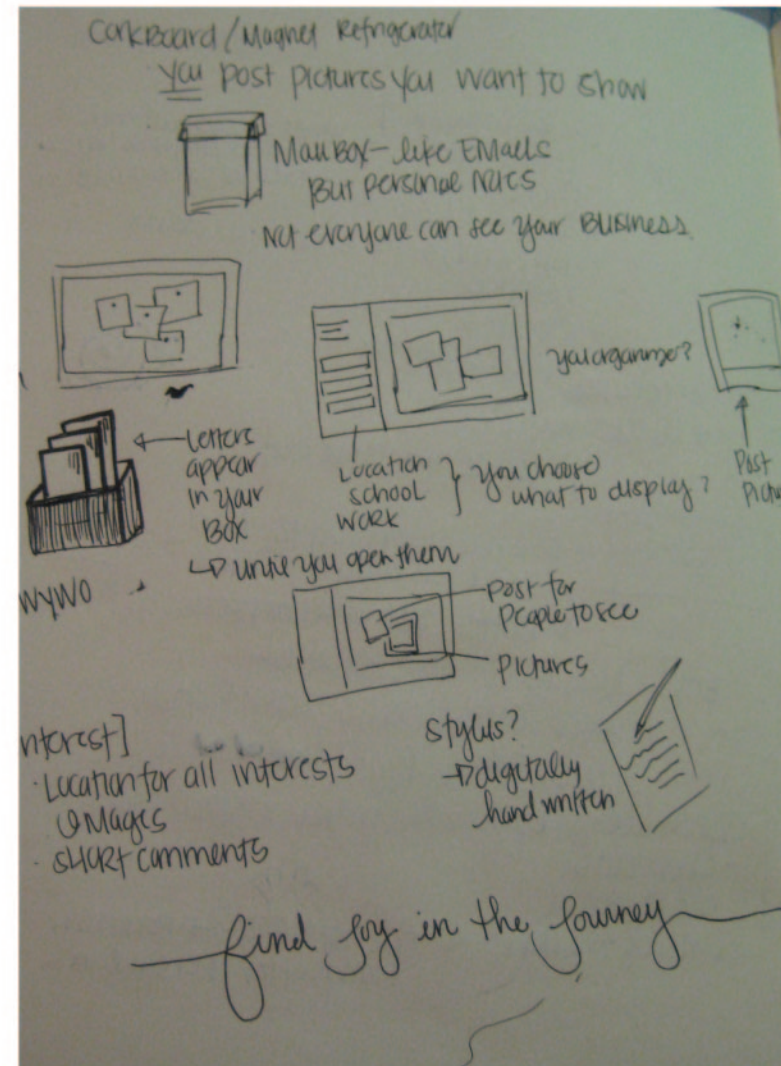 CorkBoard / Magnet Refrigerator
You post pictures you want to show
MailBox - like EMails
But personal Notes
Not everyone can see your BUSINESS.
you organize?
← Letters
appear
in your
Box
↳ until you open them
Location
school
work
} you choose
what to display?
Post
Pictu
WYWO
Post for
People to see
Pictures
nterest]
· Location for all interests
Images
· SHORT comments
stylus?
→ digitally
hand written
find joy in the journey